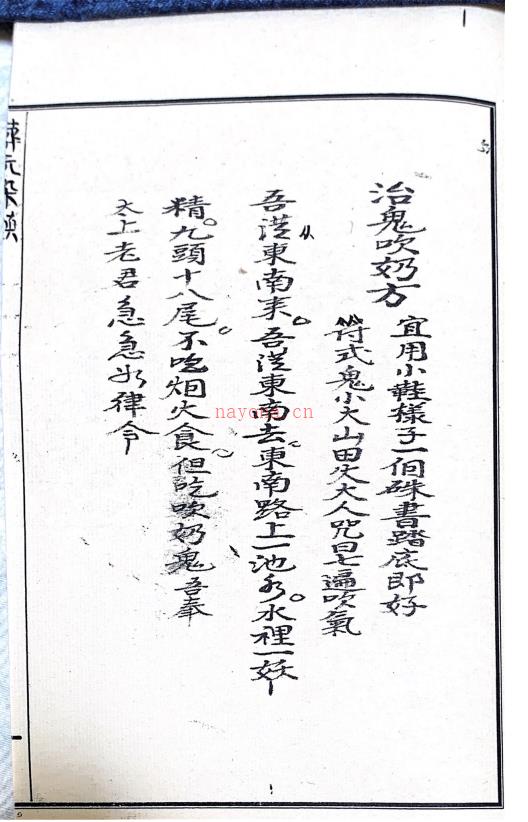 治鬼吹奶方
宜用小鞋樣子一個硃書踏底即好
符式鬼小大山田火大人咒曰七遍吹氣
吾從東南来。吾從東南去東南路上一池水。水裡一妖
精。九頭十八尾。不吃烟火食但吃吹奶鬼吾奉
太上老君急急如律令
nayona.cn